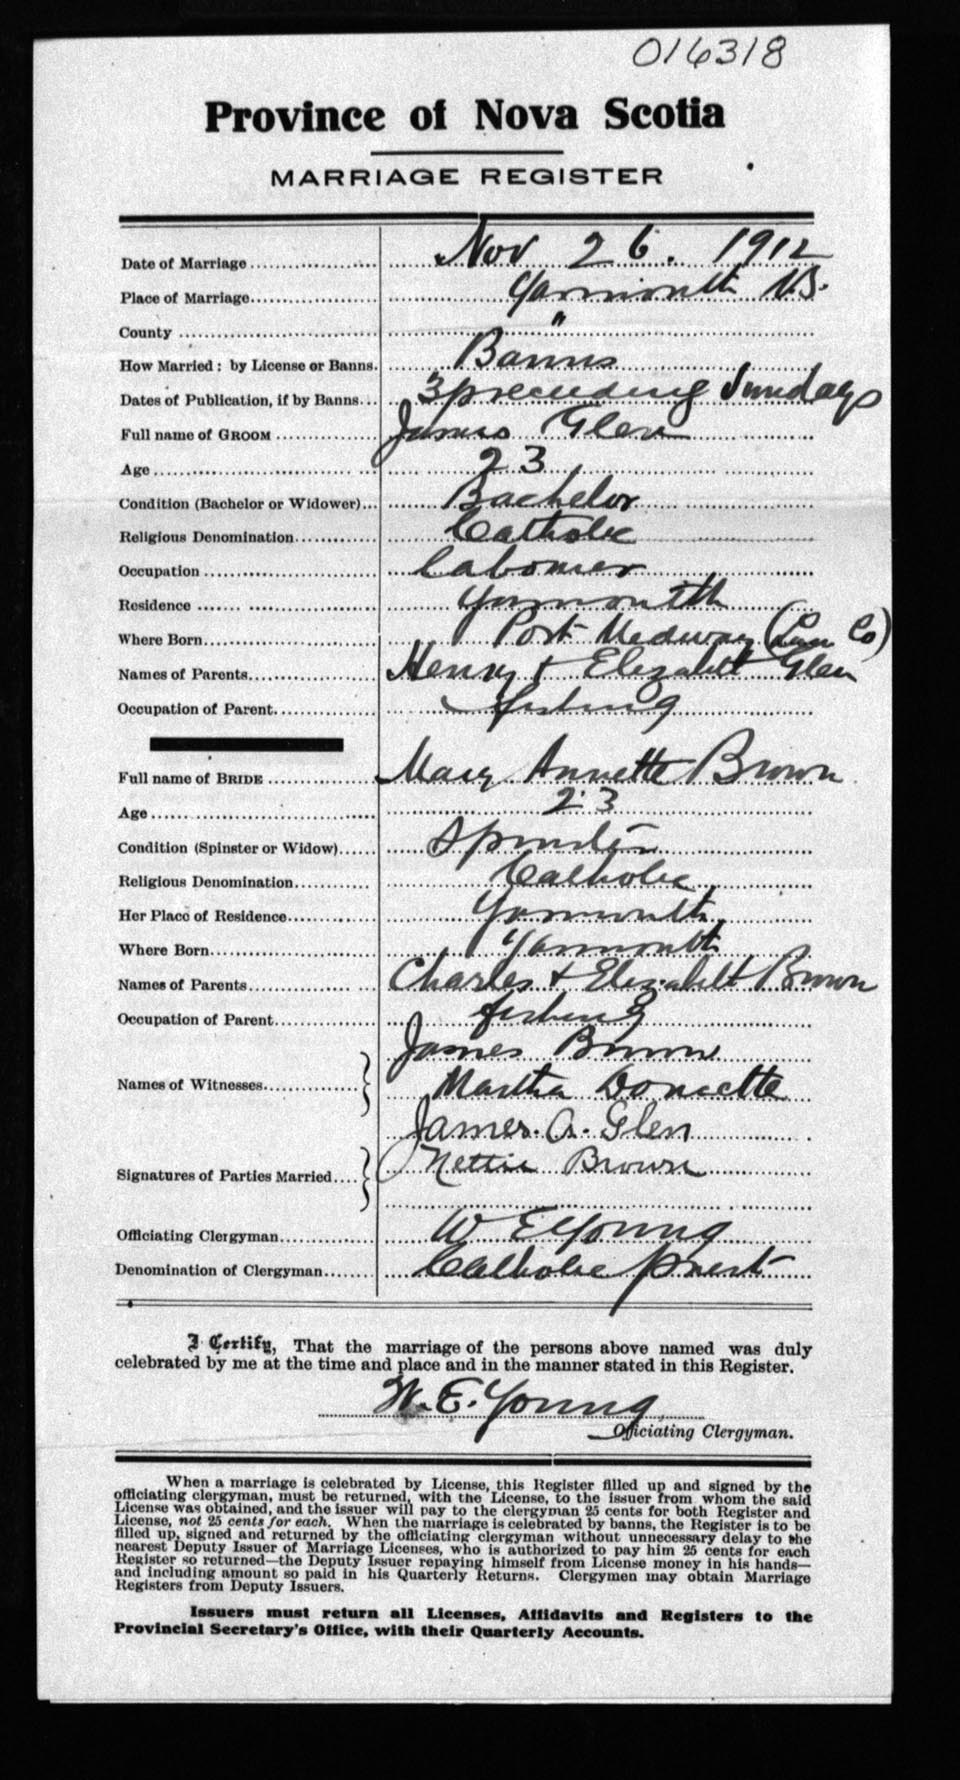 016318
Province of Nova Scotia
MARRIAGE REGISTER
Date of Marriage Nov 26. 1912
Place of Marriage Yarmouth N.S.
County "
How Married: by License or Banns. Banns
Dates of Publication, if by Banns 3 preceeding Sundays
Full name of GROOM James Glen
Age 23
Condition (Bachelor or Widower) Bachelor
Religious Denomination Catholic
Occupation Labourer
Residence Yarmouth
Where Born Port Medway (Lun Co)
Names of Parents Henry + Elizabeth Glen
Occupation of Parent fishing
Full name of BRIDE Mary Annette Brown
Age 23
Condition (Spinster or Widow) Spinster
Religious Denomination Catholic
Her Place of Residence Yarmouth
Where Born Yarmouth
Names of Parents Charles + Elizabeth Brown
Occupation of Parent fishing
James Brown
Names of Witnesses Martha Doucette
James. A. Glen
Signatures of Parties Married Nettie Brown
Officiating Clergyman W E Young
Denomination of Clergyman Catholic priest
I Certify, That the marriage of the persons above named was duly
celebrated by me at the time and place and in the manner stated in this Register.
W. E. Young
Officiating Clergyman.
When a marriage is celebrated by License, this Register filled up and signed by the
officiating clergyman, must be returned, with the License, to the issuer from whom the said
License was obtained, and the issuer will pay to the clergyman 25 cents for both Register and
License, not 25 cents for each. When the marriage is celebrated by banns, the Register is to be
filled up, signed and returned by the officiating clergyman without unnecessary delay to the
nearest Deputy Issuer of Marriage Licenses, who is authorized to pay him 25 cents for each
Register so returned—the Deputy Issuer repaying himself from License money in his hands—
and including amount so paid in his Quarterly Returns. Clergymen may obtain Marriage
Registers from Deputy Issuers.
Issuers must return all Licenses, Affidavits and Registers to the
Provincial Secretary's Office, with their Quarterly Accounts.